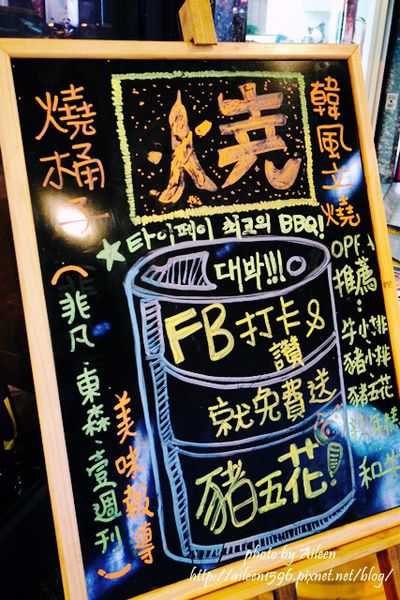 燒
燒桶子
(非凡.東森.壹週刊
美味報導)
韓風立燒
★타이페이 최고의 BBQ!
대박!!!
FB打卡&
讚
就免費送
豬五花!
推薦:
牛小排
豬小排
豬五花
和牛
photo by Aileen
http://aileen1596.pixnet.net/blog/